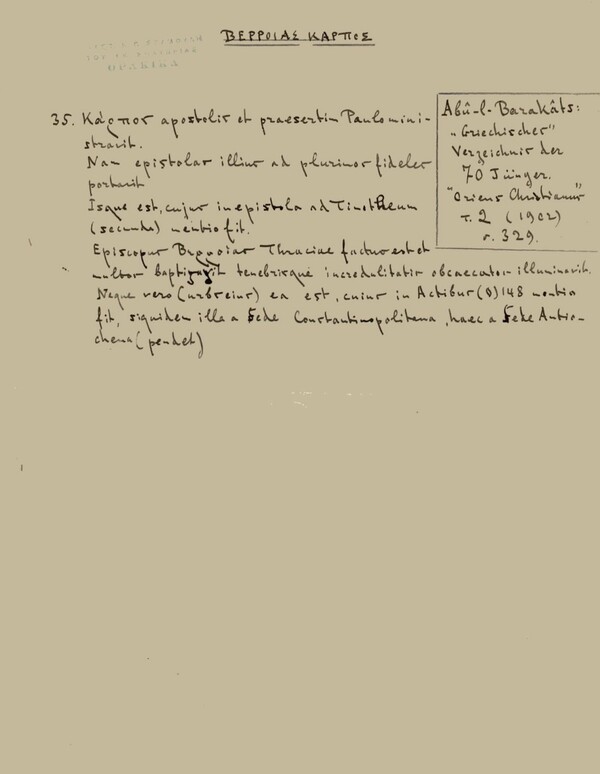 ΒΕΡΡΟΙΑΣ ΚΑΡΠΟΣ
35. Κάρπος apostolis et praesertim Paulo mini-
stravit.
Nam epistolas illius ad plurimos fideles
portavit
Isque est, cujus in epistola ad Timotheum
(secunda) mentio fit.
Episcopus Βερροίας Thraciae factus est et
multos baptizavit tenebrisque incredulitatis obcaecatos illuminavit.
Neque vero (urbs eius) ea est, cuius in Actibus (0) 148 mentio
fit, siquidem illa a Sede Constantinopolitana, haec a Sede Antio-
chena (pendet)
Abû-l-Barakâts:
"Griechisches"
Verzeichnis der
70 Jünger.
"Oriens Christianus"
τ. 2 (1902)
σ. 329.